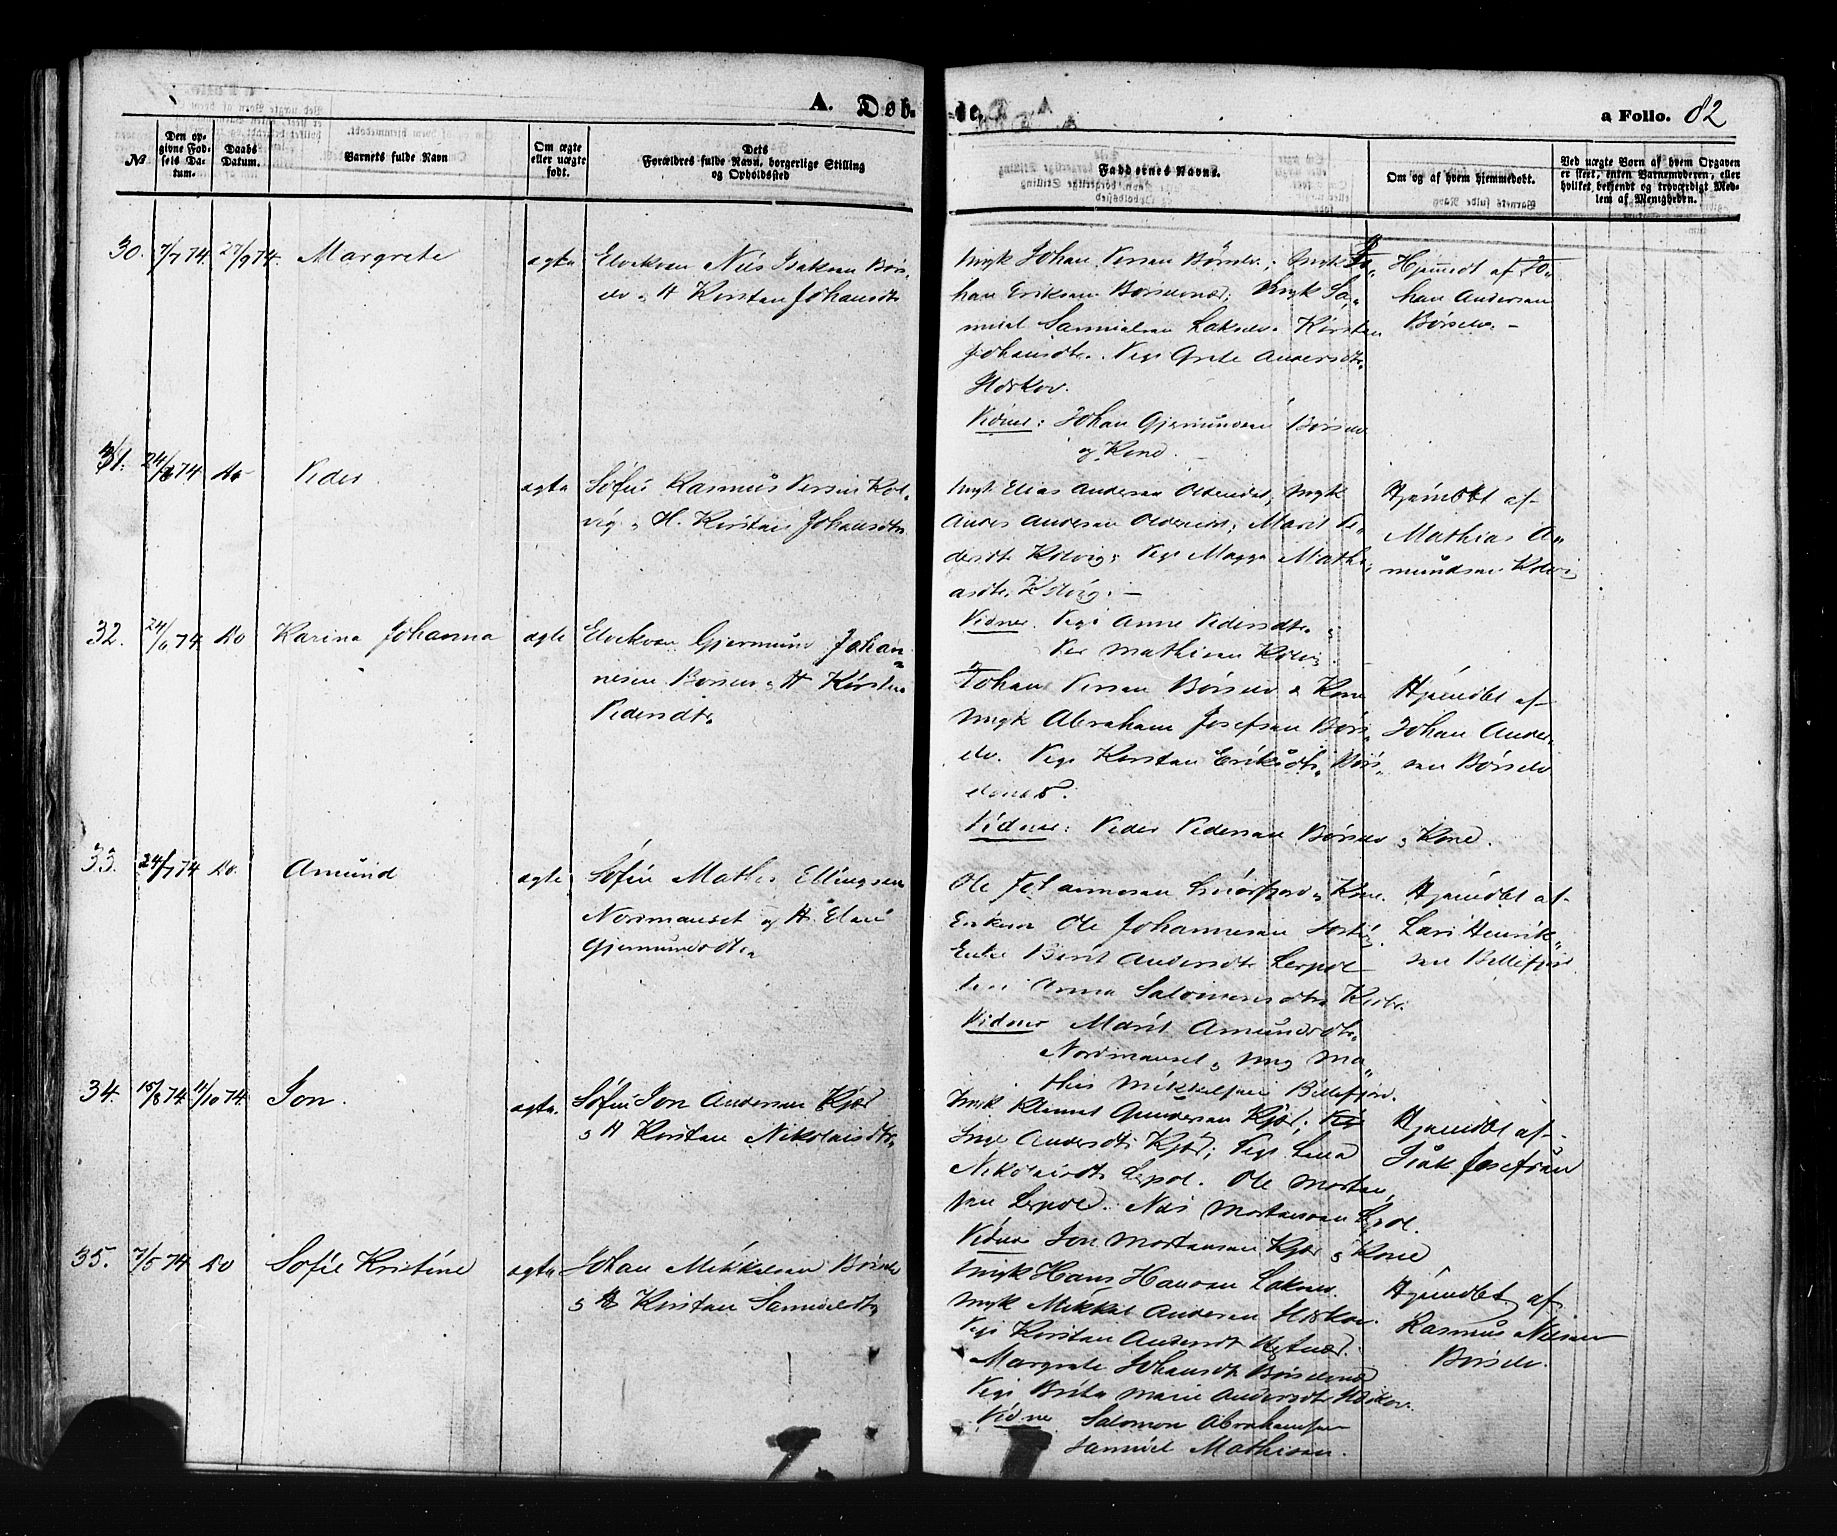 A. Døb-
-te.
a Folio. 82
№
Den op-
givne Fød-
sels Da-
tum.
Daabs
Datum.
Barnets fulde Navn
Om ægte
eller uægte
født.
Dets
Forældres fulde Navn, borgerlige Stilling
og Opholdssted
Faddernes Navne.
Om og af hvem hjemmedøbt.
Ved uægte Born af hvem Opgaven
er skeet, enten Barnemoderen, eller
hvilket bekjendt og troværdigt Med-
lem af Menigheden.
30. 7/7 74. 27/9 74. Margrete
ægte
Elvekvæn Nils Isaksen Børs-
elv & H Kirsten Johansdtr
Ungk Johan Persen Børselv; Ungk Jo-
han Eriksen Børselvnæs; Ungk Sa-
muel Samuelsen Lakselv. Kirsten
Johansdtr. Pige Grete Andersdtr
Vidner: Johan Gjermundsen Børselv
og Kone.
Hjemmedt af Jo-
han Andersen
Børselv. -
31. 24/6 74. Do Peder
ægte
Søfin Rasmus Persen Kol-
vig & H. Kirsten Johansdtr
Ungk Elias Andersen Oldereidet, Ungk
Anders Andersen Oldereidet; Marit Pe-
dersdtr Kolvig; Pige Magga Mathi-
asdtr. Kolvig. -
Vidner Pige Anne Pedersdtr. &
Per Mathisen Kolvig.
Hjemdbt af
Mathias A-
mundsen Kolvig
32. 24/6 74. Do Karina Johanna
ægte
Elvekvæn Gjermund Johan-
nesen Børselv & H Kirsten
Pedersdtr
Johan Persen Børselv & Kone
Ungk Abraham Josefsen Børs-
elv. Pige Kirsten Eriksdtr. Børs-
elvnæs.
Vidner: Peder Pedersen Børselv & Kone.
Hjemdbt af
Johan Ander-
sen Børselv
33. 24/7 74 Do. Amund
ægte
Søfin Mathis Ellingsen
Normanset og H. Elen
Gjermundsdtr
Ole Johannesen Smørfjord & Kone.
Enkem Ole Johannesen
Enke Berit Andersdtr Lerpol
Pige Anna Salomonsdtr
Vidner Marit Amundsdtr.
Normanset & Ung Ma-
this Mikkelsen Billefjord.
Hjemdbt af
Lars Henrik-
sen Billefjord.
34. 15/8 74 11/10 74. Jon.
ægte.
Søfin Jon Andersen Kjæs
& H Kirsten Nikolaisdtr
Ungk Klemet Gundersen Kjæs.
Inge Andersdtr Kjæs; Pige Lena
Nikolaisdtr Lerpol. Ole Morten
sen Lerpol. Nils Mortensen Lerpol.
Vidner Jon Mortensen Kjæs & Kone
Hjemdbt af
Isak Josefsen
35. 7/5 74 Do Sofie Kristine
ægte
Johan Mikkelsen Børselv
& H Kirsten Samuelsdtr
Ungk Hans Hansen Lakselv.
Ungk Mikkel Andersen
Pige Kirsten Andersdt
Margrete Johansdtr. Børselvnæs
Pige Brita Marie Andersdtr
Vidner Salomon Abrahamsen
Samuel Mathisen.
Hjemdbt af
Rasmus Nilsen
Børselv.